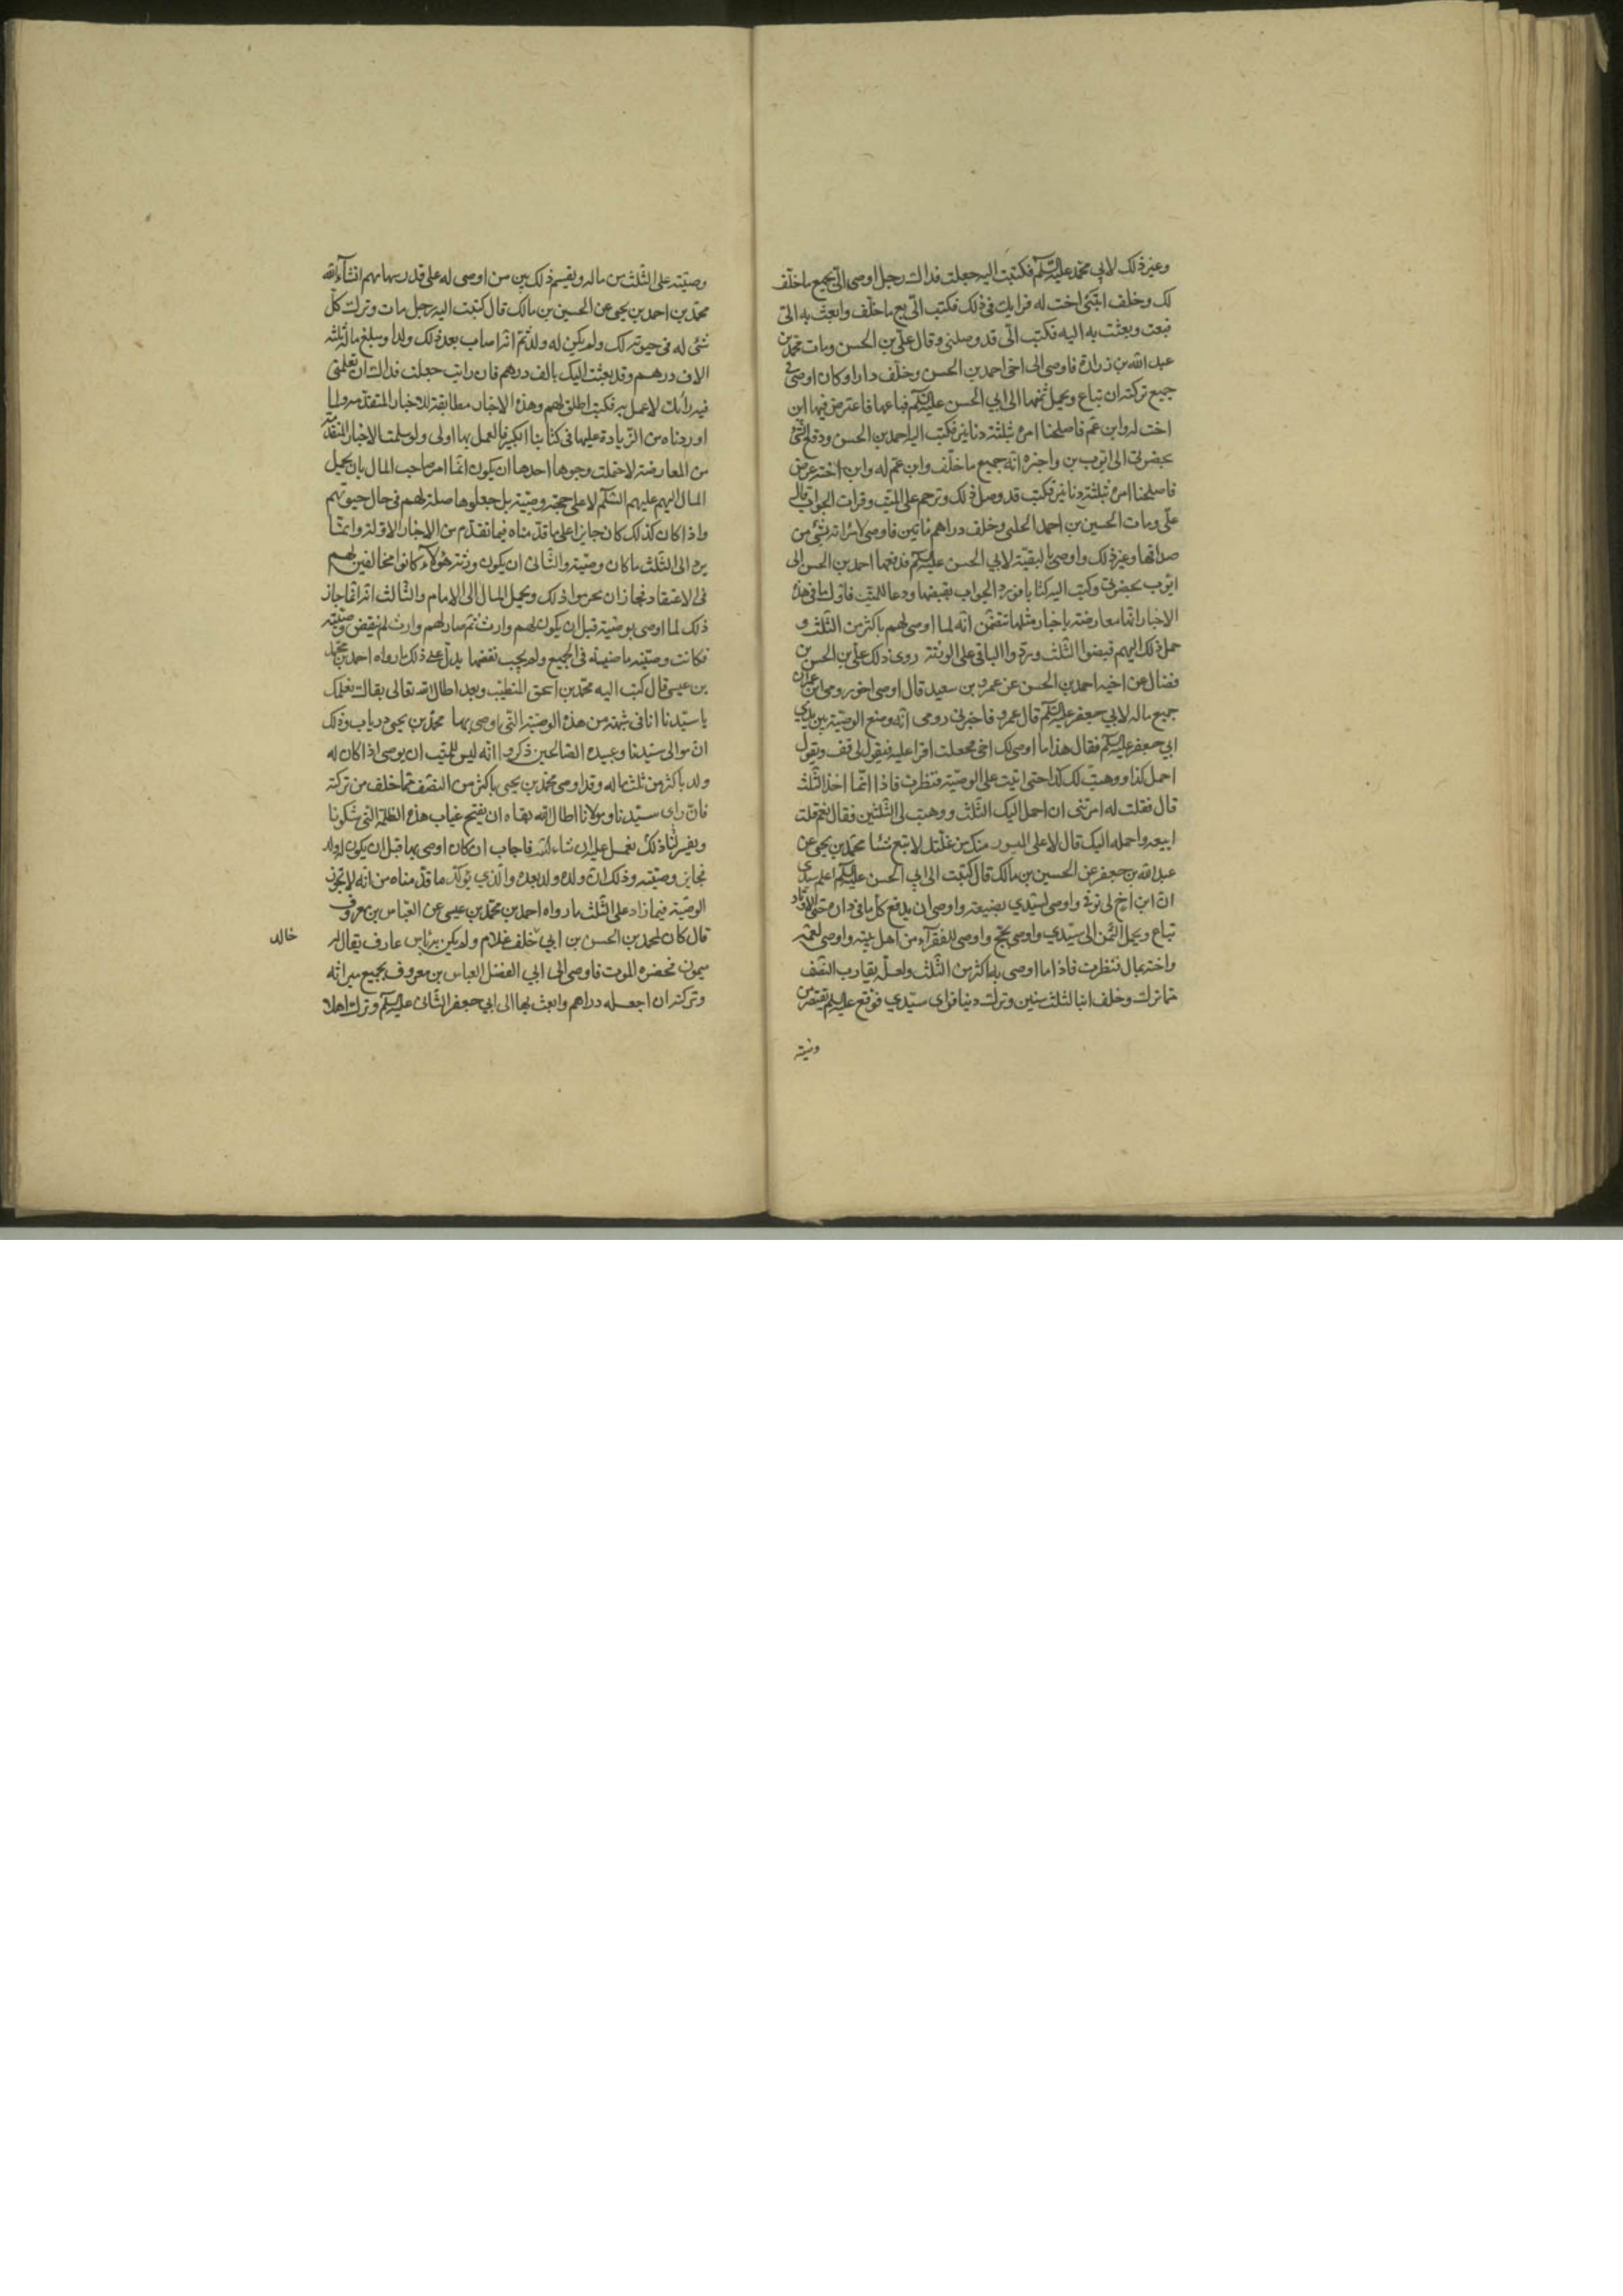 وغير ذلك لابي محمد عليه السلم فكتبت اليه جعلت فداك رجل اوصى الىّ بجميع ما خلّف
لك وخلف ابنتى اخت له فرايك فى ذلك فكتب الىّ بع ما خلّف وابعث به الىّ
فبعت وبعثت به اليه فكتب الىّ قد وصل وقال علىّ بن الحسن ومات محمد بن
عبد الله بن زرارة فاوصى الى اخى احمد بن الحسن وخلّف دارا وكان اوصى فى
جميع تركته ان تباع ويحمل ثمنها الى ابي الحسن عليه السلم فباعها فاعترض فيها ابن
اخت له وابن عم فاصلحنا امره بثلثة دنانير فكتب اليه احمد بن الحسن ودفع الشئ
بحضرتى الى ايّوب بن واخبره انّه جميع ما خلّف وابن عمّ له وابن اخته عرض
فاصلحنا امره بثلثة دنانير فكتب قد وصل ذلك وترحم على الميّت وقرات الجواب قال
علىّ ومات الحسين بن احمد الحلبى وخلف دراهم مائتين فاوصى لامراته بشئ من
صداقها وغير ذلك واوصى بالبقيّة لابي الحسن عليه السلم فدفعها احمد بن الحسن الى
ايّوب بحضرتى وكتب اليه كتابا فورد الجواب بقبضها ودعا للميّت فاوّل ما فى هذه
الاخبار انّها معارضة باخبار مثلها تتضمّن انّه لما اوصى لهم باكثر من الثلث و
حمل ذلك اليهم قبضوا الثلث وردّوا الباقى على الورثة روى ذلك علىّ بن الحسن بن
فضال عن اخيه احمد بن الحسن عن عمرو بن سعيد قال اوصى اخو رومى ابن عمران
جميع ماله لابي جعفر عليه السلم قال عمرو فاخبرنى رومى انّه وضع الوصيّة بين يدي
ابي جعفر عليه السلم فقال هذا ما اوصى لك اخى فجعلت اقرا عليه فيقول لى قف ويقول
احمل كذا ووهبت لك كذا حتى اتيت على الوصيّة فنظرت فاذا انّما اخذ الثلث
قال فقلت له امرتنى ان احمل اليك الثلث ووهبت لى الثلثين فقال نعم قلت
ابيعه واحمله اليك قال لا على الميسور منك من غلّتك لا تبع شيئا محمّد بن يحيى عن
عبد الله بن جعفر عن الحسين بن مالك قال كتبت الى ابي الحسن عليه السلم اعلم سيّدى
انّ ابن اخ لى توفّى واوصى لسيّدي بضيعة واوصى ان يدفع كلّ ما فى داره حتى الاوتاد
تباع ويحمل الثمن الى سيّدي واوصى بحجّ واوصى للفقرآء من اهل بيته واوصى لعمّته
واخته بمال فنظرت فاذا ما اوصى به اكثر من الثلث ولعلّه يقارب النّصف
ممّا ترك وخلف ابنا لثلث سنين وترك دينا فراى سيّدي فوقع عليه السلم يقتصر من
وصيّته
وصيّته على الثلث من ماله ويقسم ذلك بين من اوصى له على قدر سهامهم انشآء الله
محمّد بن احمد بن يحيى عن الحسين بن مالك قال كتبت اليه رجل مات وترك كلّ
شئ له فى حيوته لك ولم يكن له ولد ثمّ انّه اصاب بعد ذلك ولدا ومبلغ ماله ثلثه
الاف درهم وقد بعثت اليك بالف درهم فان رايت جعلت فداك ان تعلمنى
فيه رايك لاعمل به فكتب اطلق لهم وهذه الاخبار مطابقة للاخبار المتقدّمة ولما
اوردناه من الزيادة عليها فى كتابنا الكبير فالعمل بها اولى ولو سلمت الاخبار المتقدّمة
من المعارضة لاحتملت وجوها احدها ان يكون انّما امر صاحب المال بان يحمل
المال اليهم عليهم السّلم لا على جهة وصيّة بل جعلوها صلة لهم فى حال حيوتهم
واذا كان كذلك كان جايزا على ما قدّمناه فيما تقدّم من الاخبار الاوّلة وانّما
يردّ الى الثلث ما كان وصيّة والثّانى ان يكون ورثته هؤلآء كانوا مخالفين لهم
فى الاعتقاد فجاز ان يحرموا ذلك ويحمل المال الى الامام والثّالث انّه انّما جاز
ذلك لما اوصى بوصيّة قبل ان يكون لهم وارث ثمّ صار لهم وارث لم ينقض وصيّته
فكانت وصيّته ماضية فى الجميع ولم يجب نقضها يدلّ على ذلك ما رواه احمد بن محمّد
بن عيسى قال كتب اليه محمّد بن اسحق المتطبّب وبعد اطال الله تعالى بقاك نعلمك
يا سيّدنا انا فى شبهة من هذه الوصيّة التّى اوصى بها محمّد بن يحيى درياب وذلك
انّ موالى سيّدنا وعبيده الصّالحين ذكروا انّه ليس للميّت ان يوصى اذا كان له
ولد باكثر من ثلث ماله وقد اوصى محمّد بن يحيى باكثر من النصف ممّا خلف من تركته
فان راى سيّدنا ومولانا اطال الله بقاه ان يفتح غياب هذه الظلمة التى شكونا
ويفسّر لنا ذلك نعمل عليه ان شاء الله فاجاب ان كان اوصى بها قبل ان يكون له ولد
فجايز وصيّته وذلك انّ ولده ولد بعده والّذي يؤكّد ما قدّمناه من انّه لا تجوز
الوصيّة فيما زاد على الثلث ما رواه احمد بن محمّد بن عيسى عن العبّاس بن معروف
قال كان لمحمّد بن الحسن بن ابي خلف غلام ولم يكن به باس عارف يقال له
خالد
ميمون فحضره الموت فاوصى الى ابي الفضل العباس بن معروف بجميع ميراثه
وتركته ان اجعله دراهم وابعث بها الى ابي جعفر الثّانى عليه السلم وترك اهلا